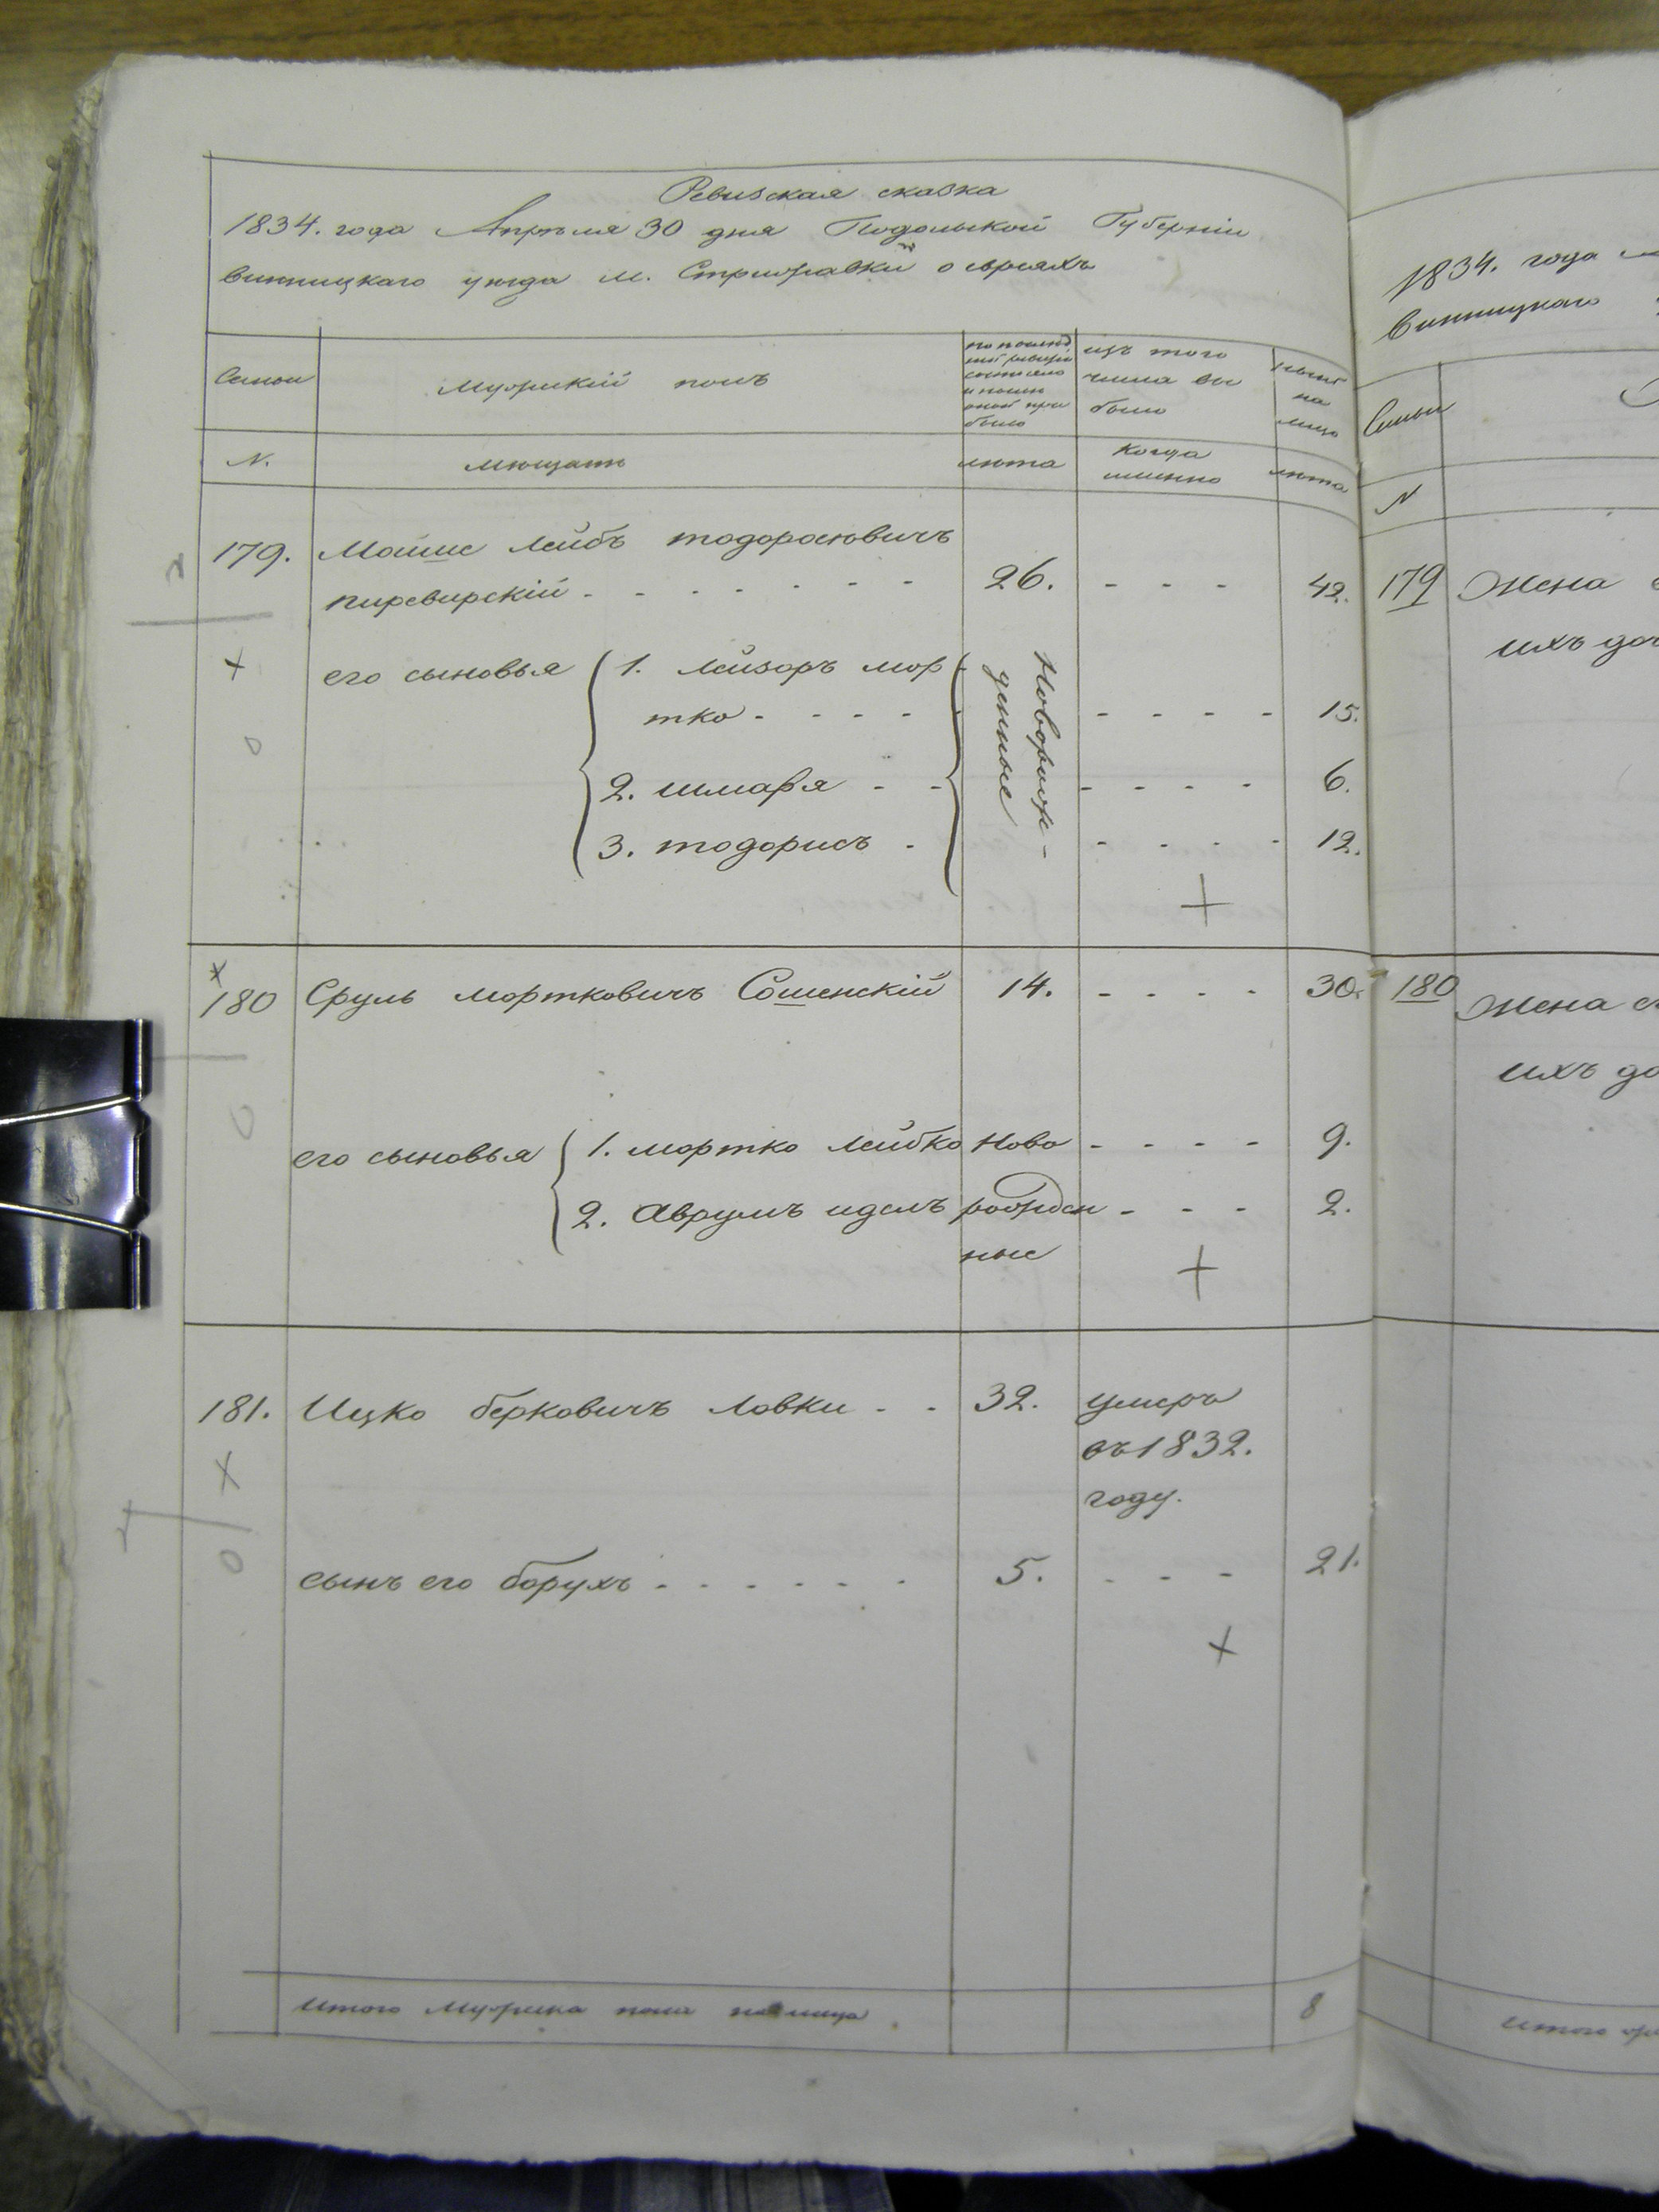 Ревизская сказка
1834. года Апреля 30 дня Подольской Губерніи
винницкаго уезда м. Стрижавки о евреяхъ
Семьи
Мужескій полъ
по послед
ней ревизіи
состояло
и после
оной при
было
изъ того
числа вы
было
ныне
на
лицо
N.
мещане
лета
когда
именно
лета
179. Мошке Лейбъ тодоросювичъ
пиревирскій - - - - - - - 26. - - - 42.
его сыновья 1. Лейзоръ мор
тко - - - - - - - - 15.
2. шмаря - - - - - - 6.
3. тодорисъ - - - - - 12.
Новорож-
денные
180 Сруль мортковичъ Сошенскій 14. - - - - 30.
его сыновья 1. мортко лейбко Ново - - - - 9.
2. Аврумъ иделъ рожден - - - 2.
ные
181. Ицко берковичъ Ловки - - 32. умеръ
въ 1832.
году.
сынъ его борухъ - - - - - - 5. - - - 21.
итого мужеска пола на лицо 8
1834. года
винницкаго
Семьи
N
179 Жена
ихъ доч
180 Жена
ихъ до
итого